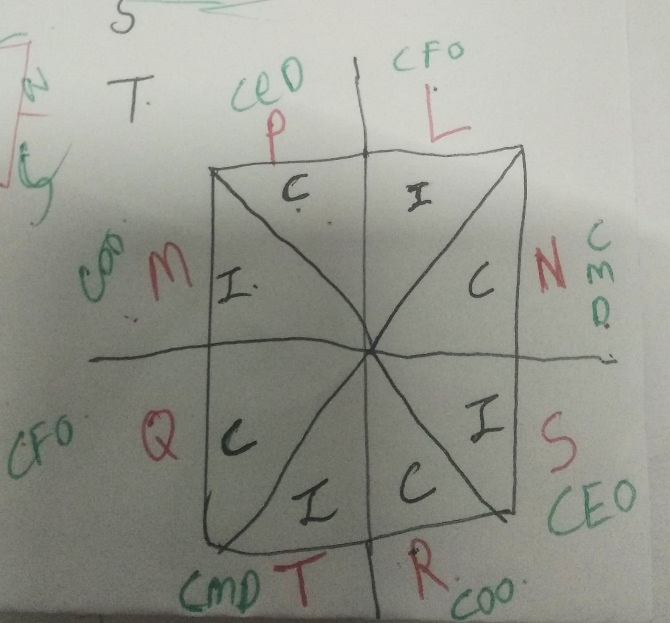 S
T.
CEO CFO
P L
C I
COO M I. C N CMD
CFO Q C I S
I C CEO
CMD T R. COO.